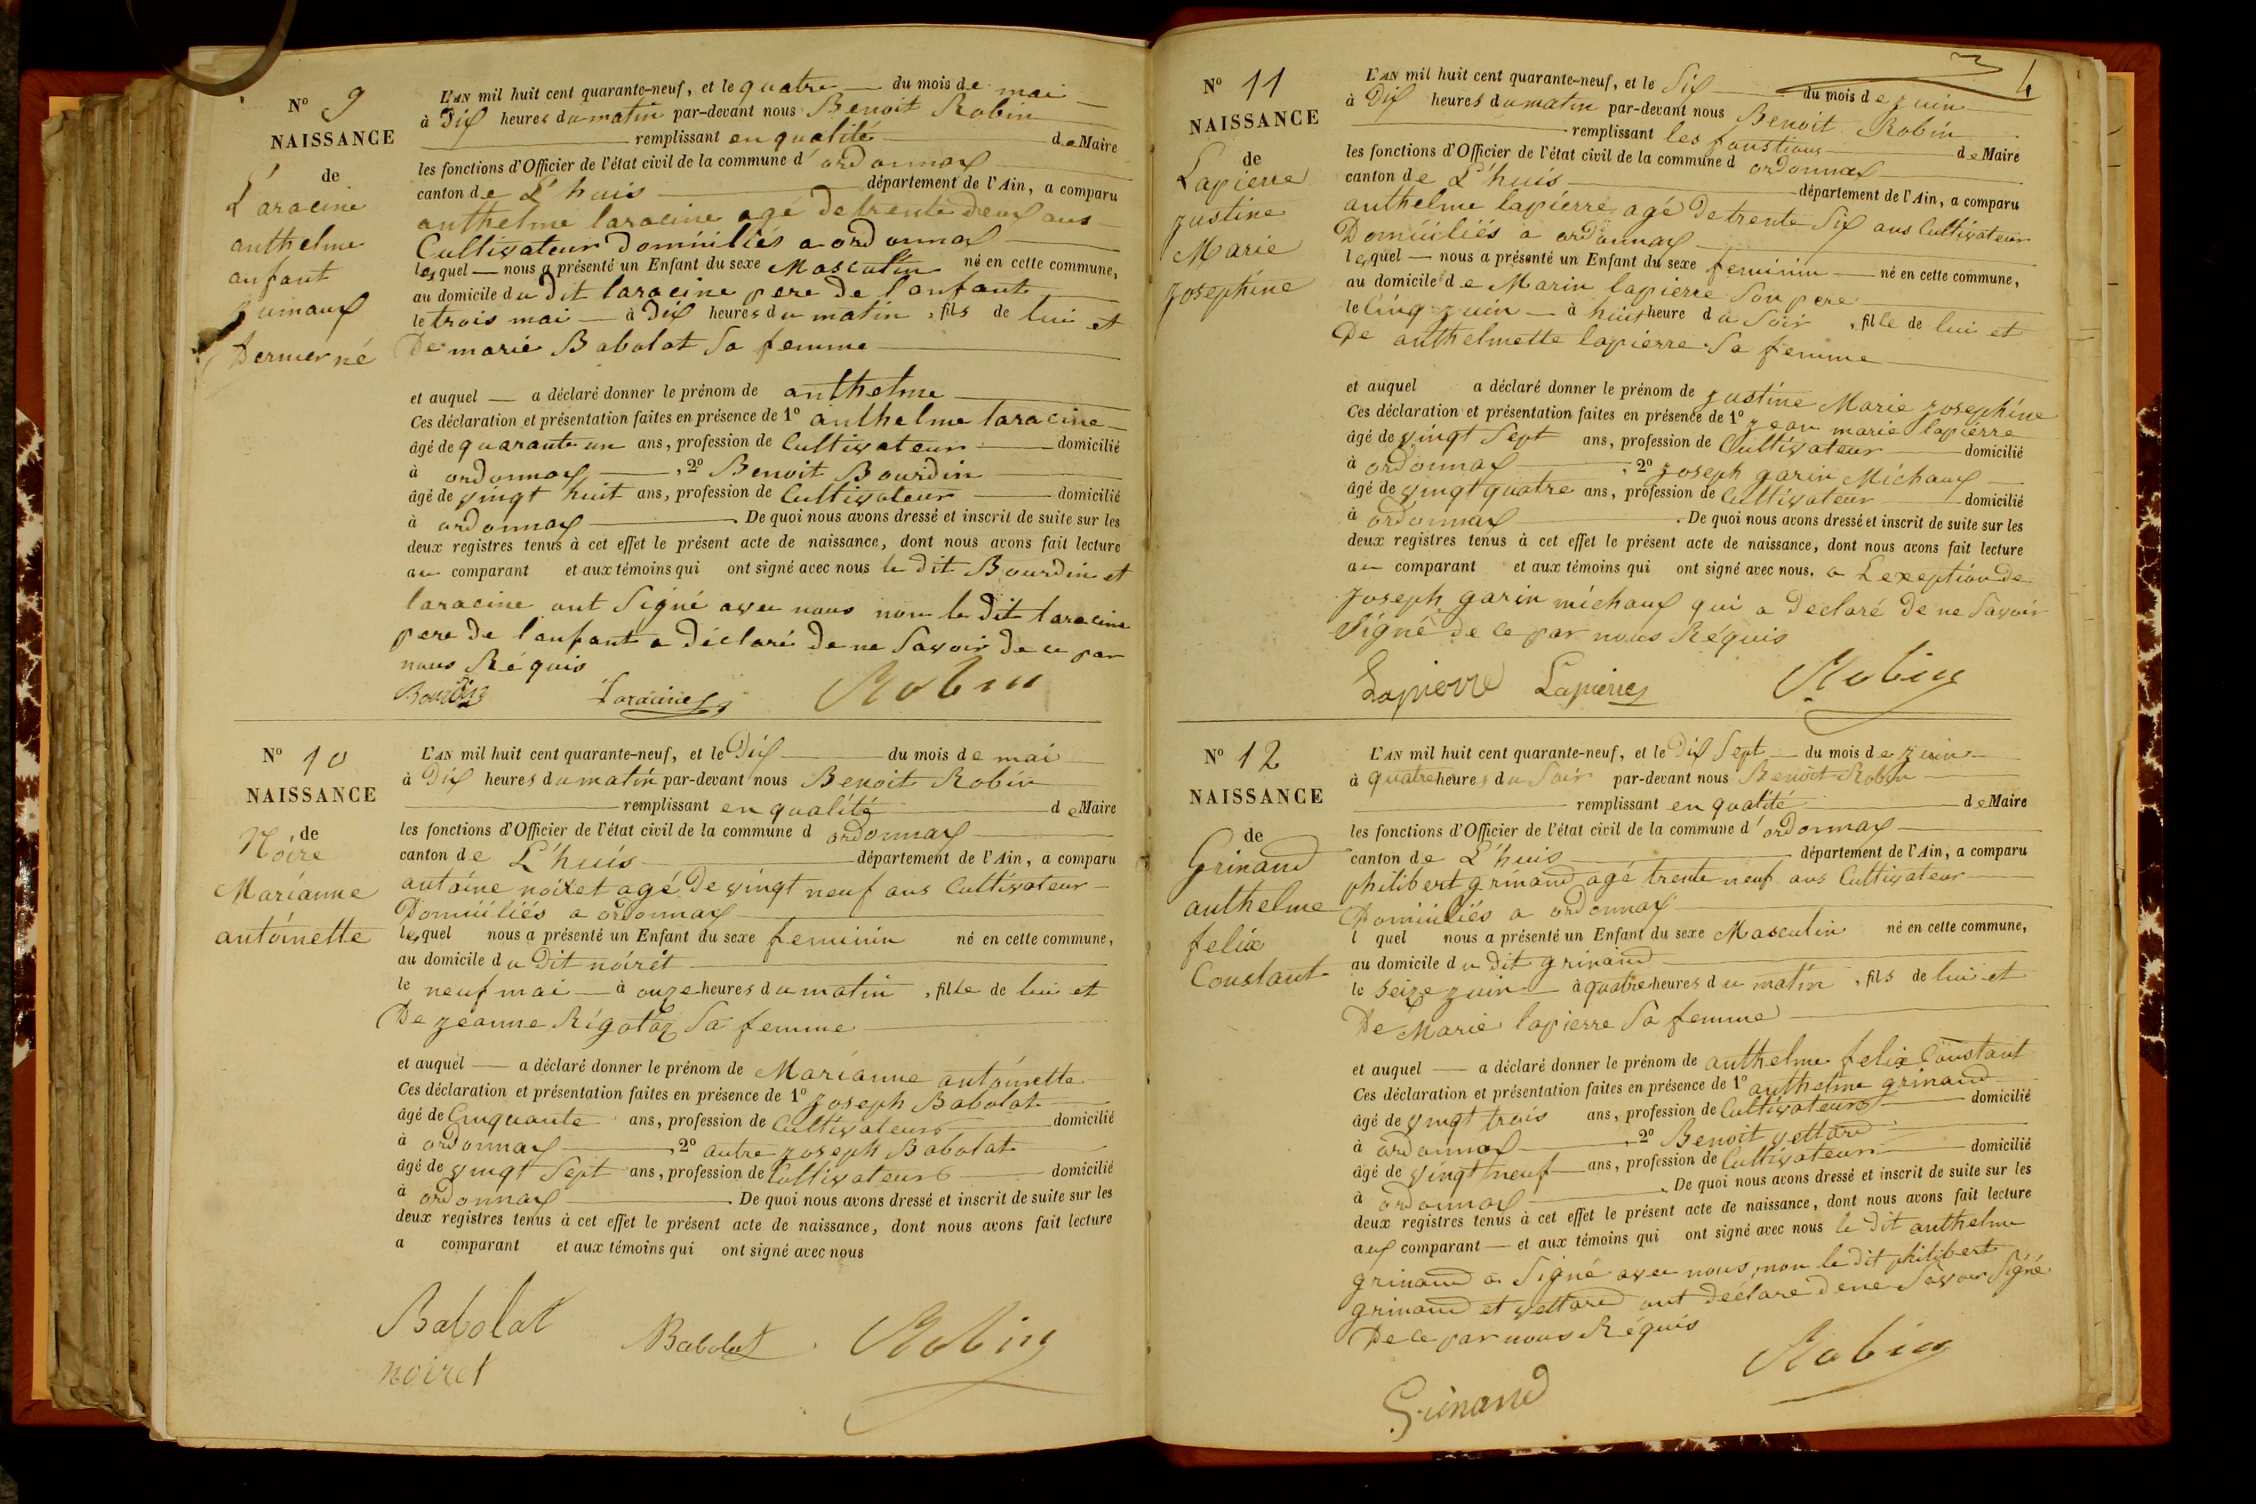 N° 9
NAISSANCE
de
Laracine
anthelme
anfant
Jumaux
Dernier né
L'AN mil huit cent quarante-neuf, et le quatre du mois de mai
à Dix heures du matin par-devant nous Benoit Robin
remplissant en qualité de Maire
les fonctions d'Officier de l'état civil de la commune d'ordonnax
canton de L'huis département de l'Ain, a comparu
anthelme laracine agé de trente deux ans
Cultivateur Domiiliés a ordonnax
lequel nous a présenté un Enfant du sexe Masculin né en cette commune,
au domicile du dit laracine pere de l'anfant
le trois mai à Dix heures du matin, fils de lui et
De marie Babolat Sa femme
et auquel a déclaré donner le prénom de anthelme
Ces déclaration et présentation faites en présence de 1° anthelme laracine
âgé de quarante un ans, profession de Cultivateur domicilié
à ordonnax, 2° Benoit Bourdin
âgé de vingt huit ans, profession de Cultivateur domicilié
à ordonnax. De quoi nous avons dressé et inscrit de suite sur les
deux registres tenus à cet effet le présent acte de naissance, dont nous avons fait lecture
au comparant et aux témoins qui ont signé avec nous le dit Bourdin et
laracine ont Signé avec nous non le dit laracine
pere de l'anfant a déclaré de ne Savoir de ce par
nous Réquis
Bourdin Laracine Robin
N° 10
NAISSANCE
de
Noire
Marianne
antoinette
L'AN mil huit cent quarante-neuf, et le Dix du mois de mai
à Dix heures du matin par-devant nous Benoit Robin
remplissant en qualité de Maire
les fonctions d'Officier de l'état civil de la commune d ordonnax
canton de L'huis département de l'Ain, a comparu
antoine noiret agé De vingt neuf ans Cultivateur
Domiiliés a ordonnax
lequel nous a présenté un Enfant du sexe feminin né en cette commune,
au domicile du Dit noiret
le neuf mai à onze heures du matin, fille de lui et
De jeanne Rigolaz Sa femme
et auquel a déclaré donner le prénom de Marianne antoinette
Ces déclaration et présentation faites en présence de 1° Joseph Babolat
âgé de Cinquante ans, profession de Cultivateur domicilié
à ordonnax 2° autre Joseph Babolat
âgé de vingt Sept ans, profession de Cultivateur domicilié
à ordonnax. De quoi nous avons dressé et inscrit de suite sur les
deux registres tenus à cet effet le présent acte de naissance, dont nous avons fait lecture
a comparant et aux témoins qui ont signé avec nous
Babolat Babolat Robin
noiret
4
N° 11
NAISSANCE
de
Lapierre
Justine
Marie
Josephine
L'AN mil huit cent quarante-neuf, et le Six du mois de juin
à Dix heures du matin par-devant nous Benoit Robin
remplissant les fonstions de Maire
les fonctions d'Officier de l'état civil de la commune d ordonnax
canton de L'huis département de l'Ain, a comparu
anthelme lapierre agé De trente Six ans Cultivateur
Domiiliés a ordonnax
lequel nous a présenté un Enfant du sexe feminin né en cette commune,
au domicile de Marin lapierre Son pere
le Cinq juin à huit heure du Soir, fille de lui et
De anthelmette lapierre Sa femme
et auquel a déclaré donner le prénom de Justine Marie Josephine
Ces déclaration et présentation faites en présence de 1° Jean marie lapierre
âgé de vingt Sept ans, profession de Cultivateur domicilié
à ordonnax, 2° Joseph garin Michaux
âgé de vingt quatre ans, profession de Cultivateur domicilié
à ordonnax. De quoi nous avons dressé et inscrit de suite sur les
deux registres tenus à cet effet le présent acte de naissance, dont nous avons fait lecture
au comparant et aux témoins qui ont signé avec nous, a Lexeption de
Joseph garin michaux qui a Declaré de ne Savoir
Signé de ce par nous Réquis
Lapierre Lapierre Robin
N° 12
NAISSANCE
de
Grinand
anthelme
felix
Constant
L'AN mil huit cent quarante-neuf, et le Dix Sept du mois de juin
à quatre heures du Soir par-devant nous Benoit Robin
remplissant en qualité de Maire
les fonctions d'Officier de l'état civil de la commune d'ordonnax
canton de L'huis département de l'Ain, a comparu
philibert grinand agé trente neuf ans Cultivateur
Domiiliés a ordonnax
l quel nous a présenté un Enfant du sexe Masculin né en cette commune,
au domicile du dit grinand
le Seize juin à quatre heures du matin, fils de lui et
De Marie lapierre Sa femme
et auquel a déclaré donner le prénom de anthelme felix Constant
Ces déclaration et présentation faites en présence de 1° anthelme grinand
âgé de vingt trois ans, profession de Cultivateur domicilié
à ordonnax, 2° Benoit vettard
âgé de vingt neuf ans, profession de Cultivateur domicilié
à ordonnax. De quoi nous avons dressé et inscrit de suite sur les
deux registres tenus à cet effet le présent acte de naissance, dont nous avons fait lecture
aux comparant et aux témoins qui ont signé avec nous le dit anthelme
grinand a Signé avec nous, non le dit philibert
grinand et vettard ont déclaré de ne Savoir Signé
De ce par nous Réquis
Grinand Robin